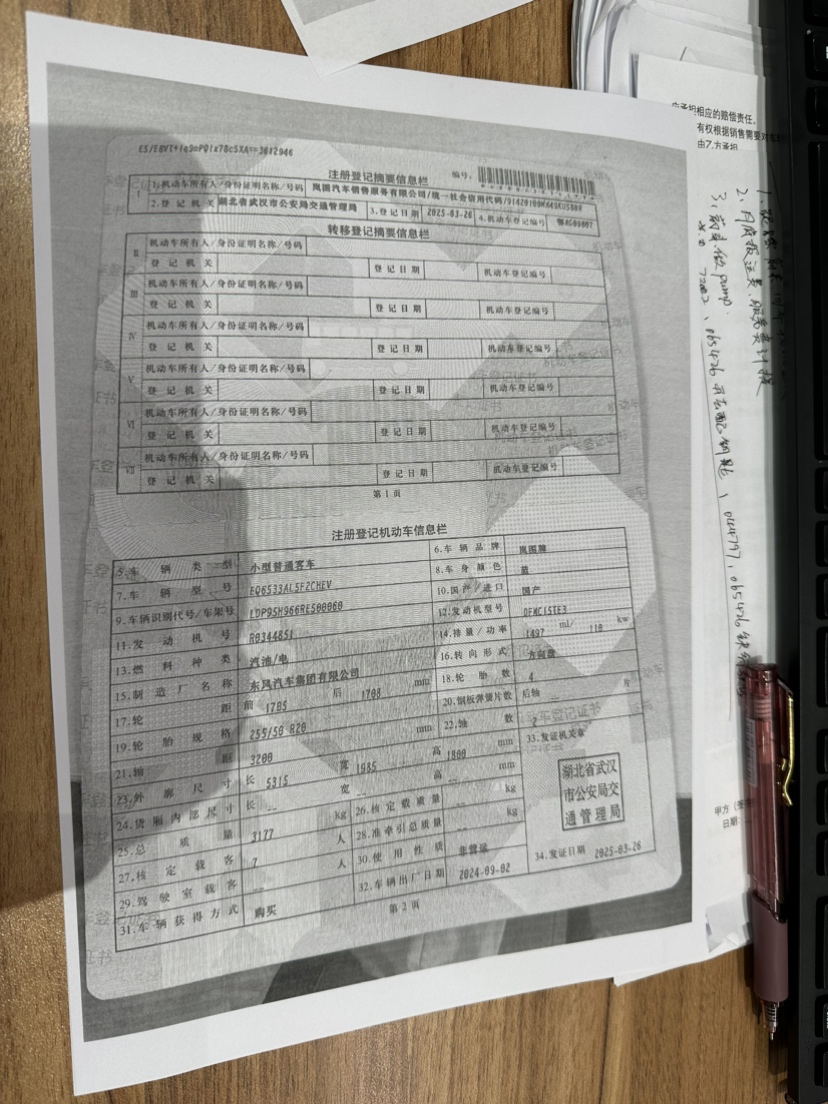 注册登记摘要信息栏
编号:
I
1.机动车所有人/身份证明名称/号码 岚图汽车销售服务有限公司/统一社会信用代码/
2.登记机关 湖北省武汉市公安局交通管理局 3.登记日期 2025-03-26 4.机动车登记编号
转移登记摘要信息栏
II
机动车所有人/身份证明名称/号码
登记机关 登记日期 机动车登记编号
III
机动车所有人/身份证明名称/号码
登记机关 登记日期 机动车登记编号
IV
机动车所有人/身份证明名称/号码
登记机关 登记日期 机动车登记编号
V
机动车所有人/身份证明名称/号码
登记机关 登记日期 机动车登记编号
VI
机动车所有人/身份证明名称/号码
登记机关 登记日期 机动车登记编号
VII
机动车所有人/身份证明名称/号码
登记机关 登记日期 机动车登记编号
第1页
注册登记机动车信息栏
5.车辆类型 小型普通客车 6.车辆品牌 岚图牌
7.车辆型号 EQ6533AL5FZCHEV 8.车身颜色 蓝
9.车辆识别代号/车架号 LDP95H966RE500060 10.国产/进口 国产
11.发动机号 R0344851 12.发动机型号 DFMC15TE3
13.燃料种类 汽油/电 14.排量/功率 1497 ml/ 110 kw
15.制造厂名称 东风汽车集团有限公司 16.转向形式 方向盘
17.轮距 前 1705 后 1708 mm 18.轮胎数 4
19.轮胎规格 255/50 R20 20.钢板弹簧片数 后轴 -- 片
21.轴距 3200 mm 22.轴数 2
23.外廓尺寸 长 5315 宽 1985 高 1800 mm 33.发证机关章
24.货厢内部尺寸 长 -- 宽 -- 高 -- mm
25.总质量 3177 kg 26.核定载质量 -- kg
27.核定载客 7 人 28.准牵引总质量 -- kg
29.驾驶室载客 -- 人 30.使用性质 非营运
31.车辆获得方式 购买 32.车辆出厂日期 2024-09-02 34.发证日期 2025-03-26
湖北省武汉
市公安局交
通管理局
第2页
应承担相应的赔偿责任。
有权根据销售需要对
由乙方承担
日期: